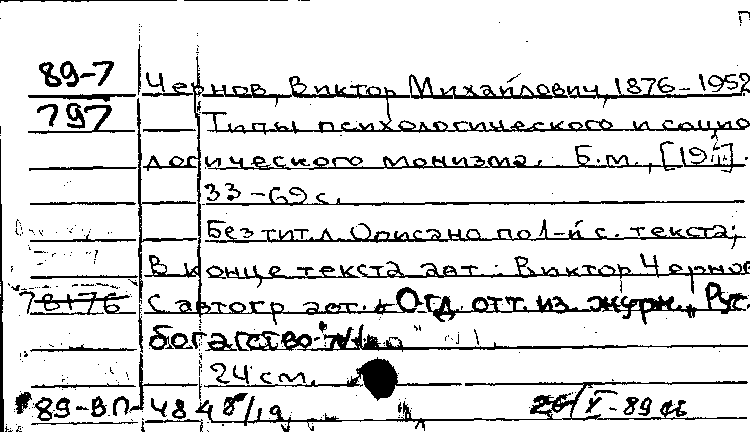 89-7 Чернов, Виктор Михайлович, 1876-1952
797 Типы психологического и социо
логического монизма. Б.м.,
33-69 с.
Без тит. л. Описано по 1-й с. текста;
В конце текста авт.: Виктор Чернов
78176 С автогр авт. Отд. отт. из журн. „Рус.
богатство"
24 см.
89-ВП-4848/19 26/X-89